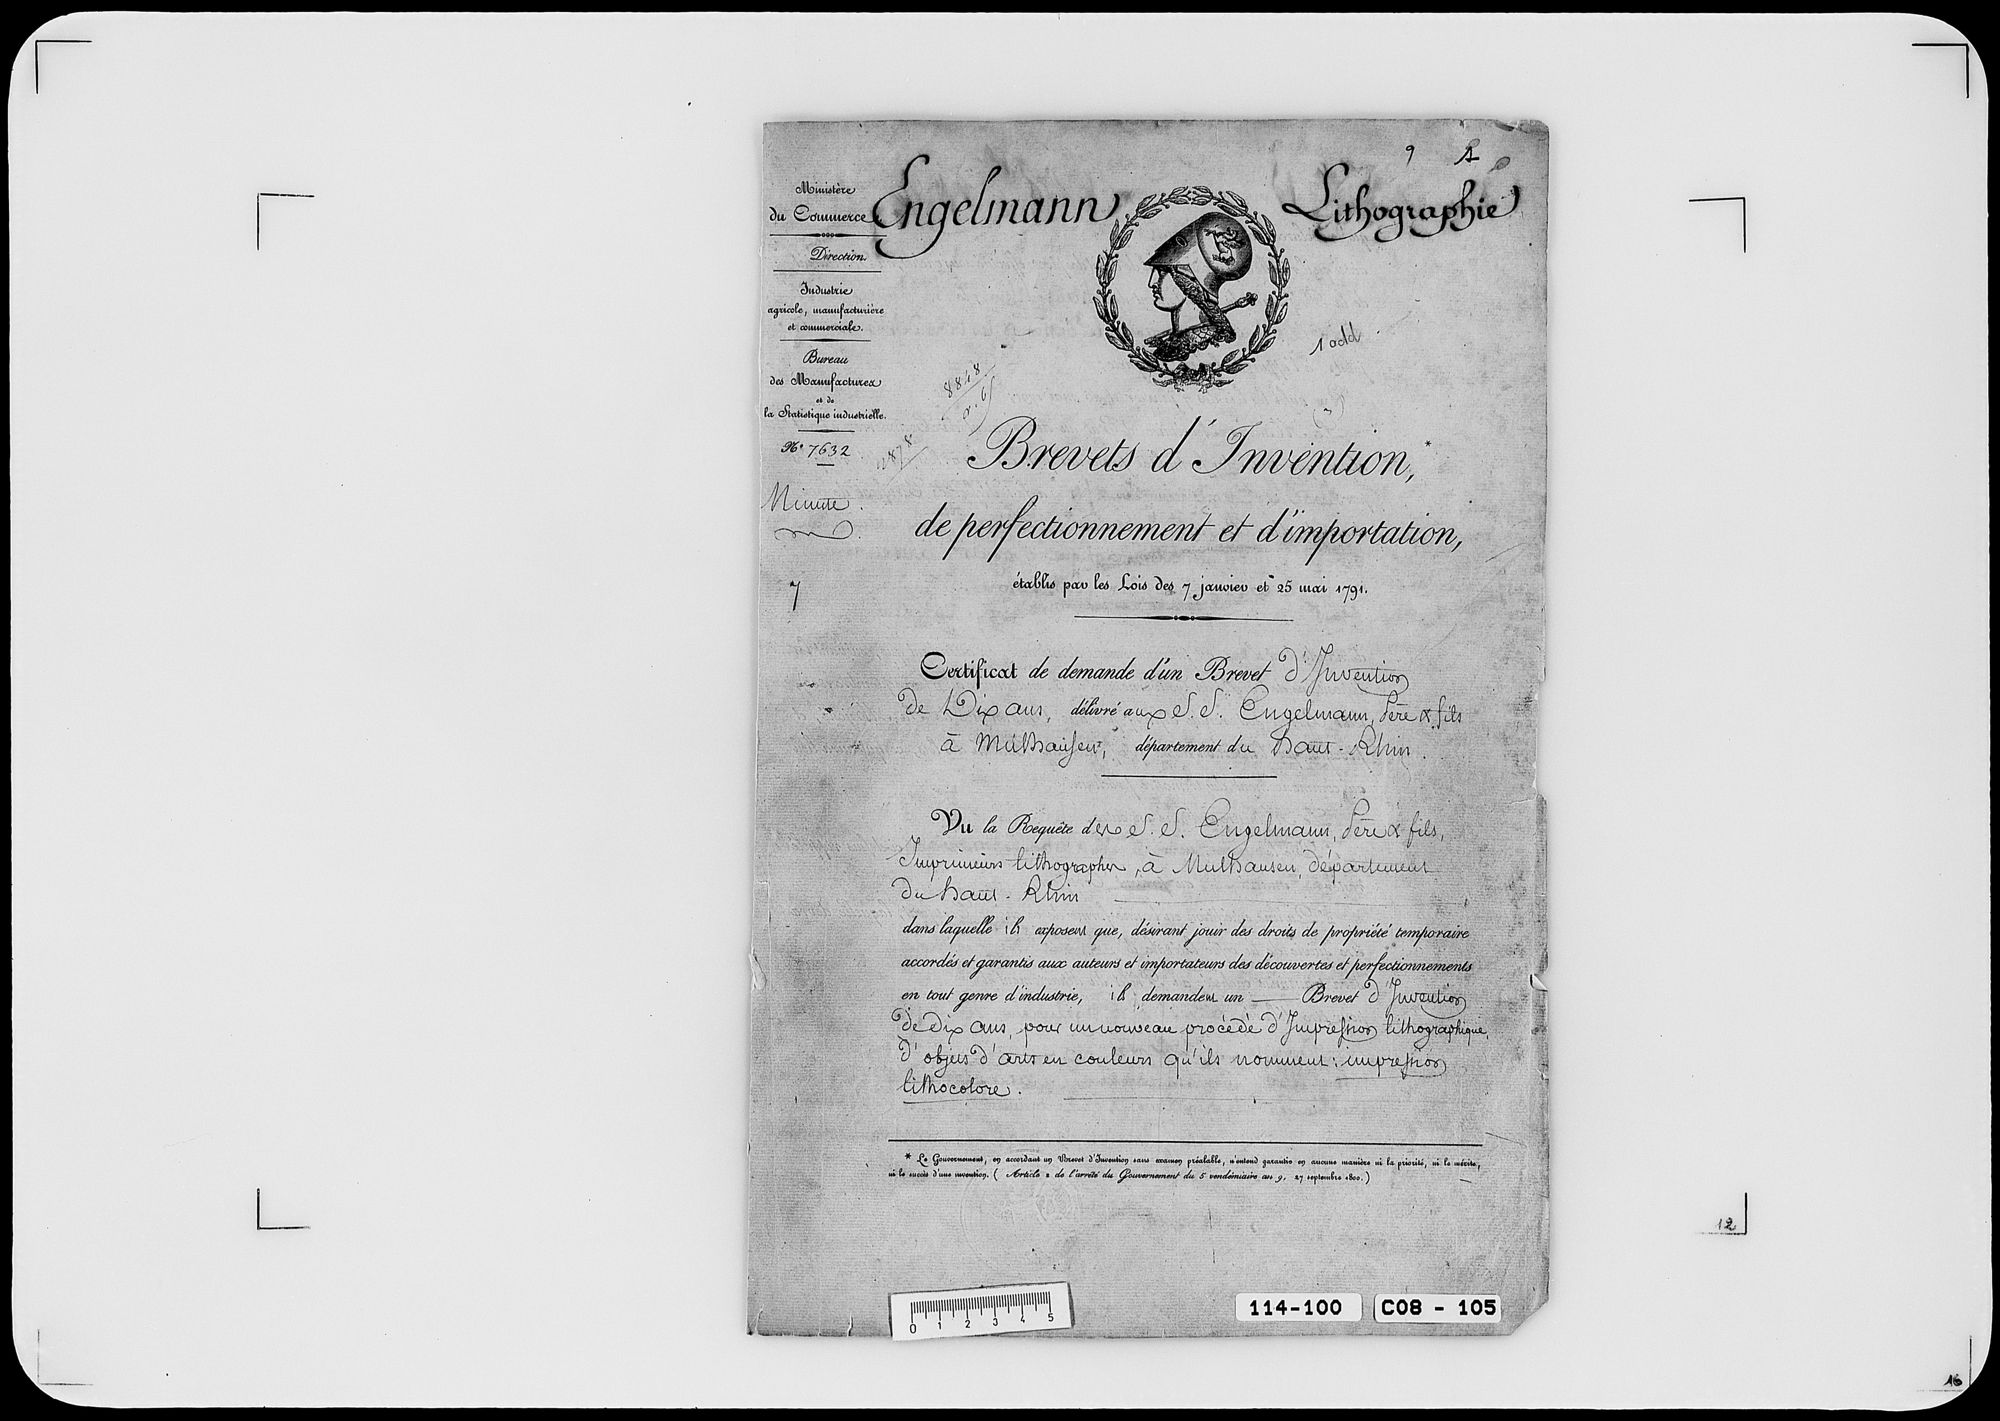 9 1
Engelmann Lithographie
Ministère
du Commerce.
Direction.
Industrie
agricole, manufacturière
et commerciale.
Bureau
des Manufactures
et de
la Statistique industrielle.
N° 7632
Minute.
7
1 add
8848
Brevets d'Invention,*
de perfectionnement et d'importation,
établis par les Lois des 7 janvier et 25 mai 1791.
Certificat de demande d'un Brevet d'Invention
de Dix ans, délivré aux S.S. Engelmann, Père & fils
à Mulhausen, département du haut-Rhin.
Vu la Requête des S.S. Engelmann, Père & fils,
Imprimeurs lithographes, à Mulhausen, département
du haut-Rhin
dans laquelle ils exposent que, désirant jouir des droits de propriété temporaire
accordés et garantis aux auteurs et importateurs des découvertes et perfectionnements
en tout genre d'industrie, ils demandent un Brevet d'Invention
de dix ans, pour un nouveau procédé d'Impression lithographique
d'objets d'arts en couleurs qu'ils nomment : impression
lithocolore.
* Le Gouvernement, en accordant un Brevet d'Invention sans examen préalable, n'entend garantir en aucune manière ni la priorité, ni le mérite,
ni le succès d'une invention. (Article 2 de l'arrêté du Gouvernement du 5 vendémiaire an 9, 27 septembre 1800.)
0 1 2 3 4 5
114-100 C08 - 105
12
16